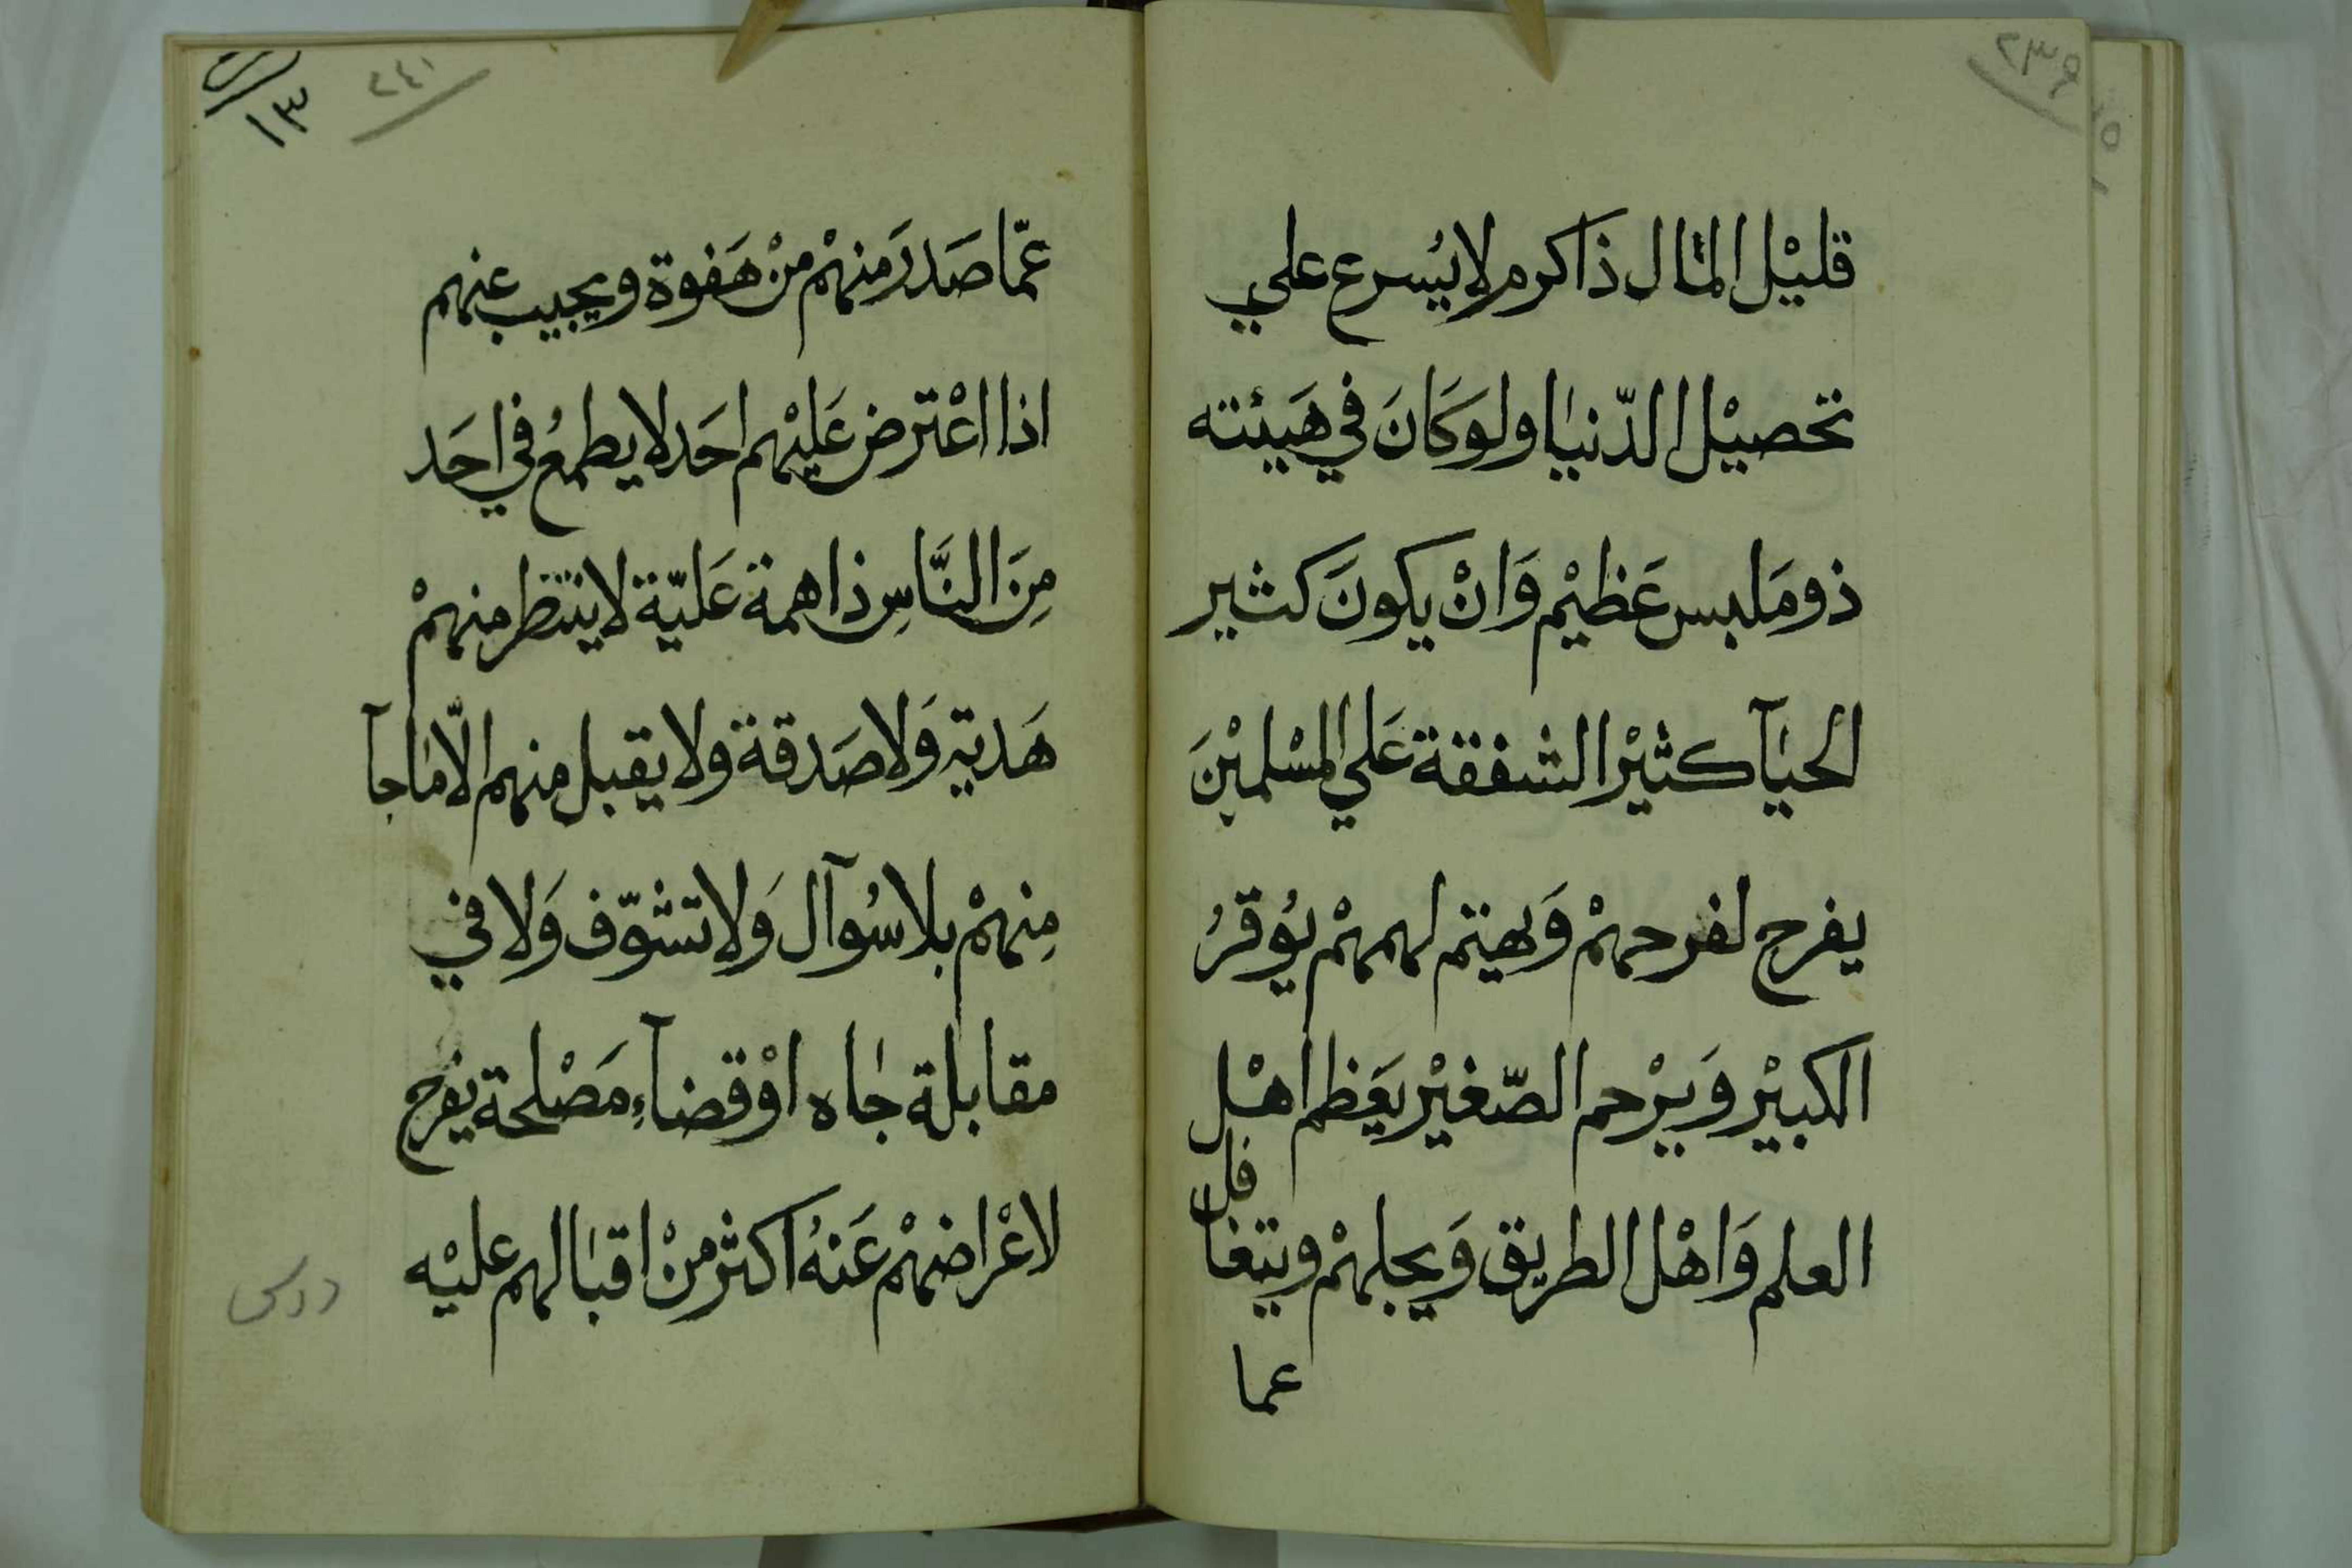 ٢٣٩
قليْل المال ذاكرم لا يُسرع علي
تحصيْل الدّنيا ولوَكَانَ في هَيئته
ذو مَلبس عَظيْم وَانْ يكونَ كثير
الحيآ كثيْر الشفقة عَلي المسْلميْنَ
يفرح لفرحهمْ وَيهتم لهمهمْ يُوقرُ
الكبيْر وَيرْحم الصّغيْر يعَظم اهْل
العلم وَاهْل الطريق وَيجلهمْ ويتغافل
عما
٢٤١
١٣
عمّا صَدرَ منهمْ منْ هَفوة ويجيب عنهم
اذا اعْترض عَليْهم احَد لا يطمعُ في احَد
مِنَ النَّاسِ ذا همة عَليّة لا ينتظر منهمْ
هَدية وَلا صَدقة ولا يقبل منهم الّا ما جآ
مِنهمْ بلا سُوآل وَلا تشوّف وَلا في
مقابلة جاه اوْ قضآءِ مَصْلحة يفرح
لاعْراضهمْ عَنهُ اكثر منْ اقبالهم عليْه